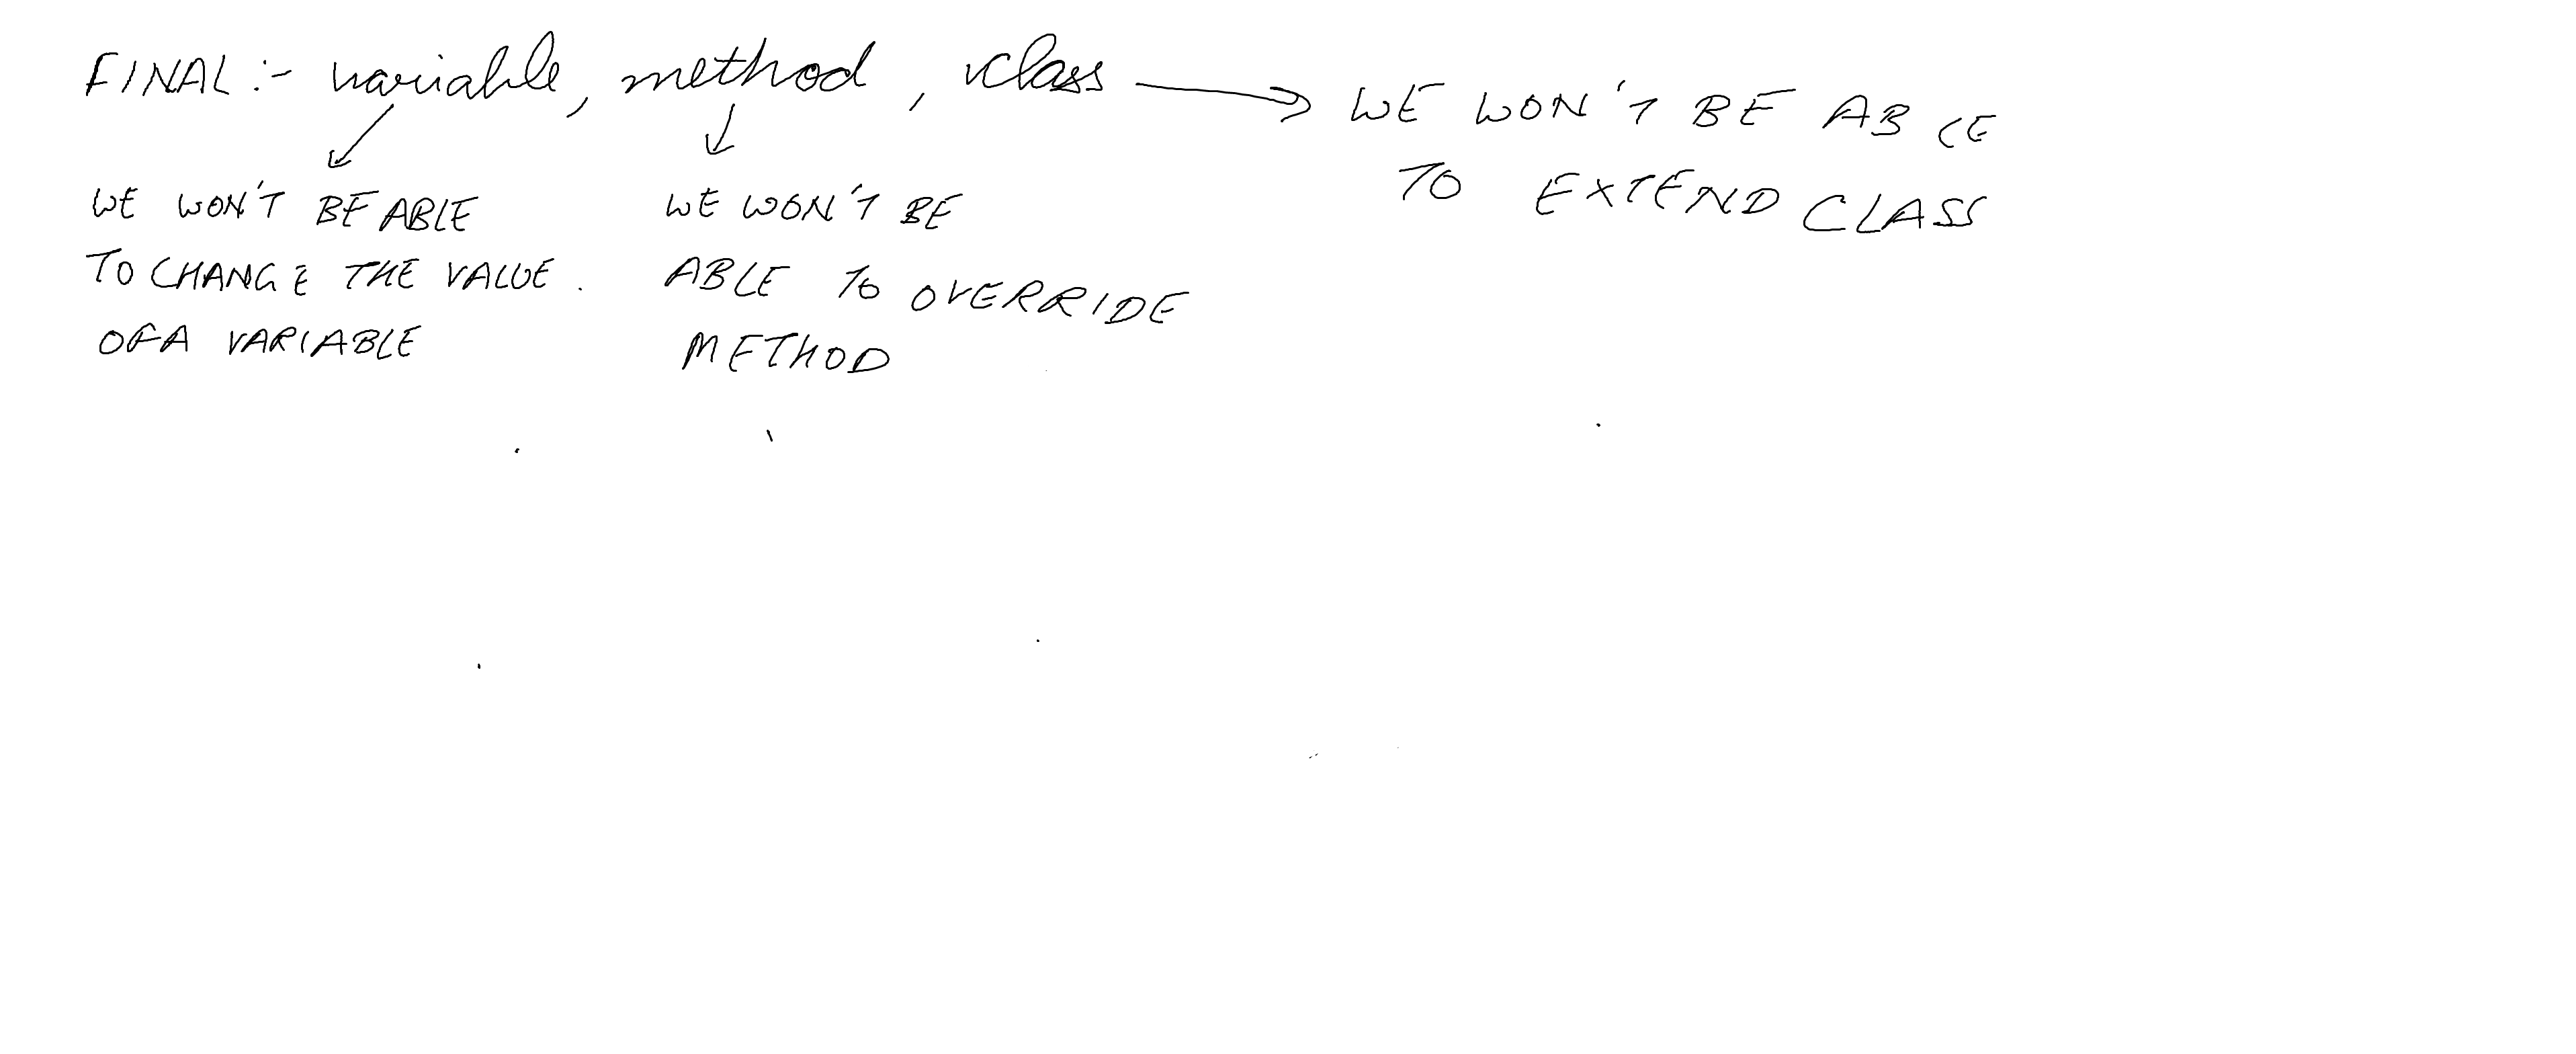 FINAL :- variable, method, class → WE WON'T BE ABLE
TO EXTEND CLASS
WE WON'T BE ABLE
TO CHANGE THE VALUE.
OF A VARIABLE
WE WON'T BE
ABLE TO OVERRIDE
METHOD